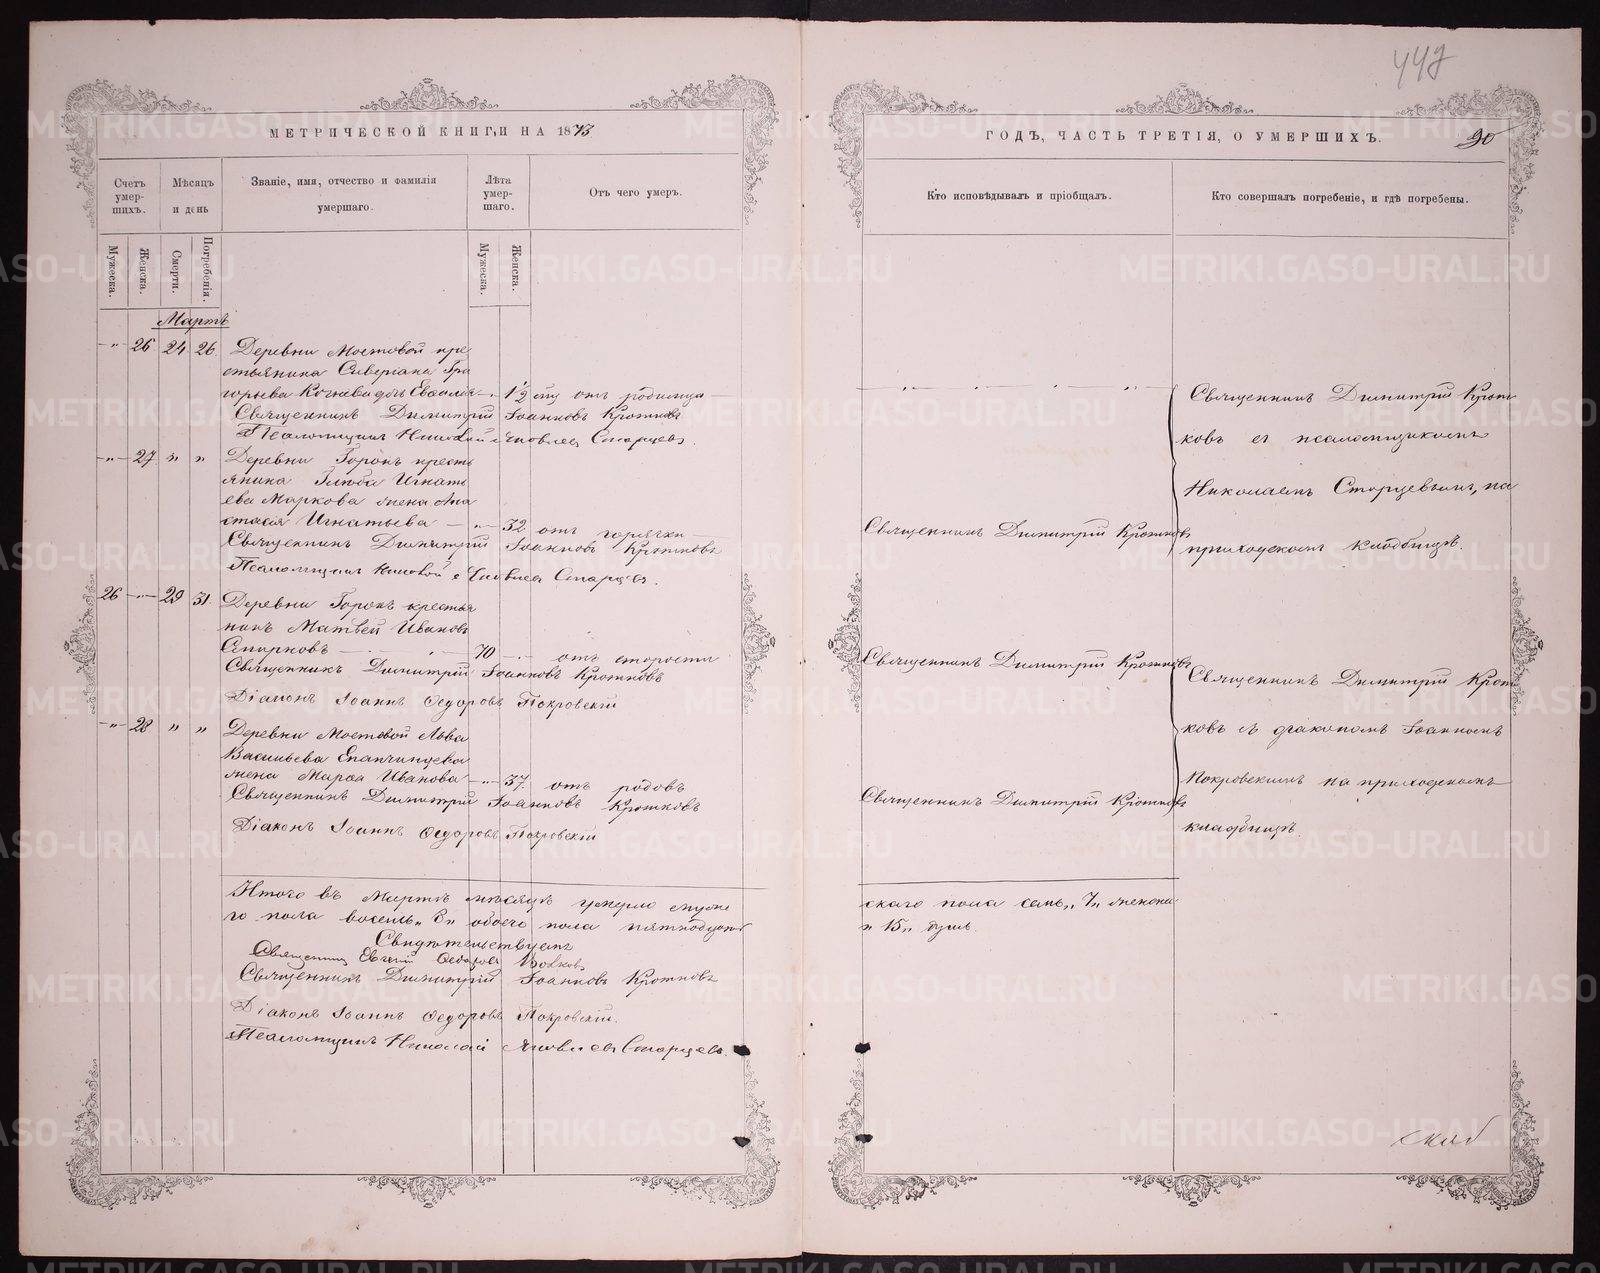 МЕТРИЧЕСКОЙ КНИГИ НА 1873
Счетъ умер-шихъ.
Мѣсяцъ и день
Званіе, имя, отчество и фамилія умершаго.
Лѣта умер-шаго.
Отъ чего умеръ.
Мужеска.
Женска.
Смерти.
Погребенія.
Мужеска.
Женска.
Мартъ
26 24 26 Деревни Мостовой кре
стьянина Северіана Гри
горьева дочь 1/2 отъ родимца
Священникъ Димитрій Іоанновъ Кротковъ
Псаломщикъ Николай Яковлевъ Старцевъ.
27 " " Деревни Горокъ кресть
янина Глѣба Игнать
ева Маркова жена Ана
стасія Игнатьева 32 отъ горячки
Священникъ Димитрій Іоанновъ Кротковъ
Псаломщикъ Николай Яковлевъ Старцевъ.
26 29 31. Деревни Горокъ крестья
нинъ Матвей Ивановъ
Спирковъ 70 отъ старости
Священникъ Димитрій Іоанновъ Кротковъ
Діаконъ Іоаннъ Ѳедоровъ Покровскій
28 " " Деревни Мостовой Льва
Васильева Епанчинцева
жена Марѳа Иванова 37. отъ родовъ
Священникъ Димитрій Іоанновъ Кротковъ
Діаконъ Іоаннъ Ѳедоровъ Покровскій
Итого въ Мартѣ мѣсяцѣ умерло муже
го пола восемь „8„ обоего пола пятнадцать
Свидѣтельствуемъ
Священникъ Евгеній Ѳедоровъ
Священникъ Димитрій Іоанновъ Кротковъ
Діаконъ Іоаннъ Ѳедоровъ Покровскій.
Псаломщикъ Николай Яковлевъ Старцевъ.
ГОДЪ, ЧАСТЬ ТРЕТІЯ, О УМЕРШИХЪ.
90
Кто исповѣдывалъ и пріобщалъ.
Кто совершалъ погребеніе, и гдѣ погребены.
Священникъ Димитрій Крот
ковъ съ псаломщикомъ
Николаемъ Старцевымъ, на
Священникъ Димитрій Кротковъ
приходскомъ кладбищѣ.
Священникъ Димитрій Кротковъ
Священникъ Димитрій Крот
ковъ съ діакономъ Іоанномъ
Покровскимъ на приходскомъ
Священникъ Димитрій Кротковъ
кладбищѣ.
скаго пола семь „7„ женска
„15„ душъ.
METRIKI.GASO-URAL.RU